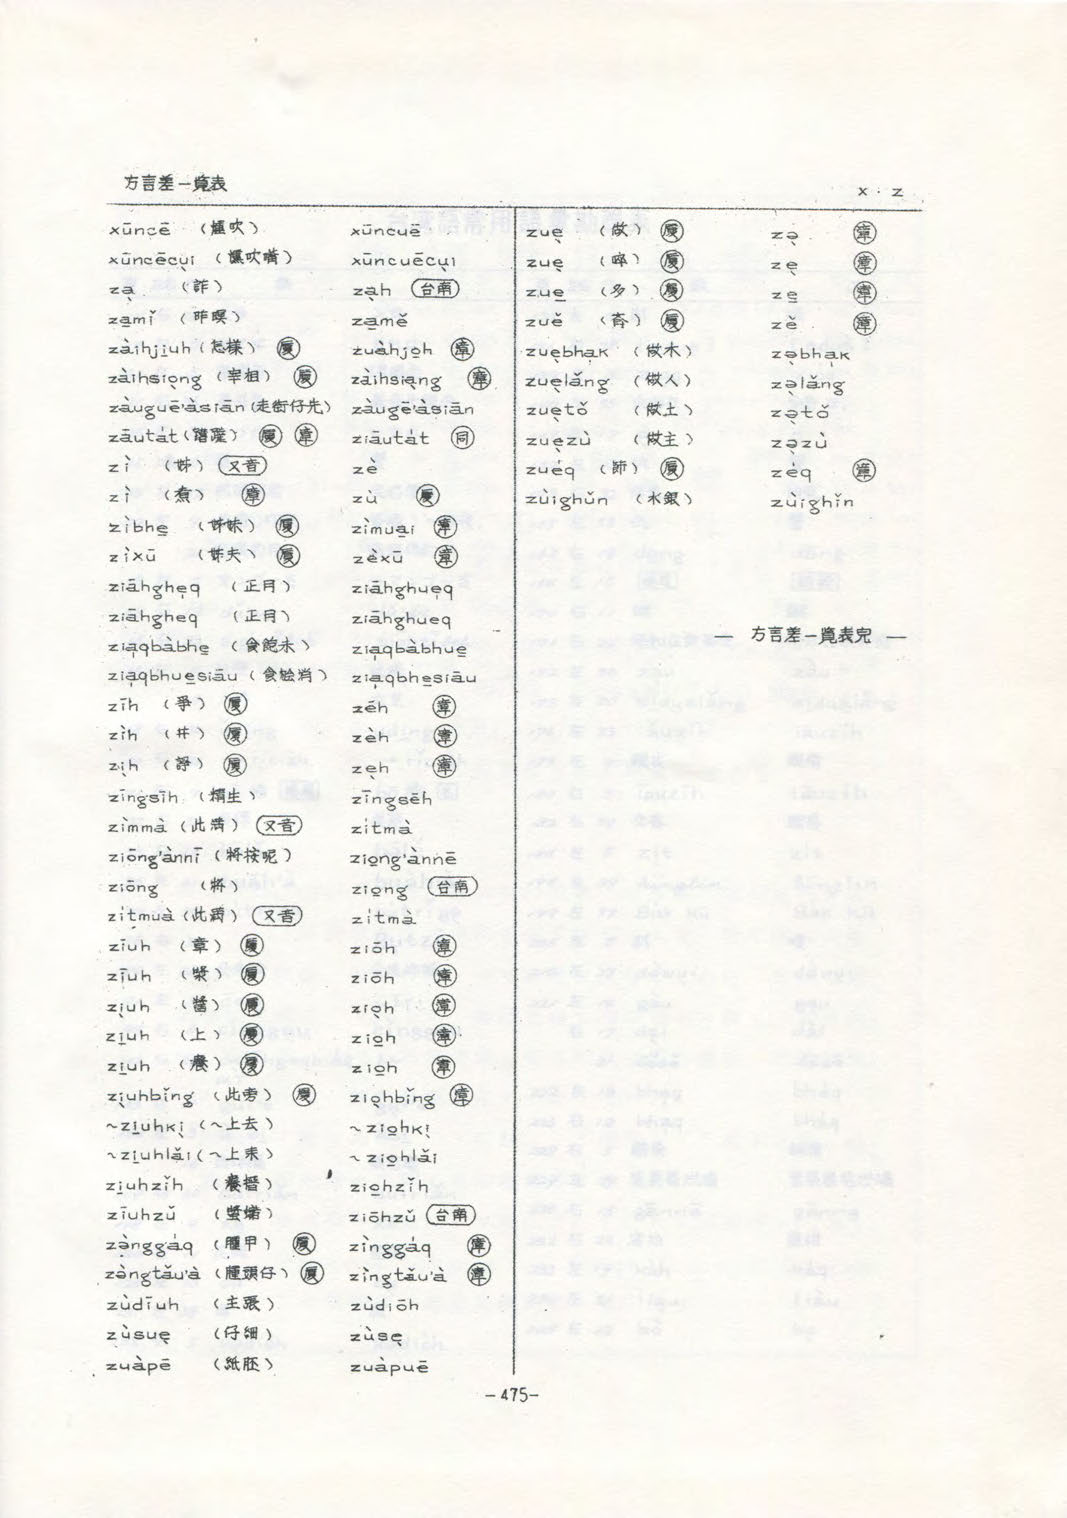 方言差一覧表
x · z
xūncē (燻吹) xūncuē
xūncēcụi (燻吹嘴) xūncuēcụi
zạ (詐) zạh 台南
za̱mǐ (昨暝) za̱mě
zàihjiuh (怎樣) 厦 zuàhjo̱h 漳
zàihsio̱ng (宰相) 厦 zàihsia̱ng 漳
zàuguē'àsiān (走街仔先) zàugē'àsiān
zāutát 厦 漳 ziāutát 同
zì (姊) 又音 zè
zì (煮) 漳 zù 厦
zìbhe̱ (姊妹) 厦 zìmua̱i 漳
zìxū (姊夫) 厦 zèxū 漳
ziāhghẹq (正月) ziāhghuẹq
ziāhgheq (正月) ziāhghueq
zia̱qbàbhe̱ (食飽未) zia̱qbàbhue̱
zia̱qbhue̱siāu (食𣍐消) zia̱qbhe̱siāu
zīh (爭) 厦 zēh 漳
zìh (井) 厦 zèh 漳
zịh (諍) 厦 zẹh 漳
zīngsīh (精生) zīngsēh
zìmmà (此満) 又音 zítmà
ziōng'ànnī (將按呢) zio̱ng'ànnē
ziōng (將) zio̱ng 台南
zítmuà (此満) 又音 zítmà
zīuh (章) 厦 ziōh 漳
zīuh (漿) 厦 ziōh 漳
zịuh (醬) 厦 ziọh 漳
zi̱uh (上) 厦 zio̱h 漳
zi̱uh (癢) 厦 zio̱h 漳
zịuhbǐng (此旁) 厦 ziọhbǐng 漳
~zi̱uhkị (~上去) ~zio̱hkị
~zi̱uhlǎi (~上来) ~zio̱hlǎi
zi̱uhzǐh zio̱hzǐh
zīuhzǔ (蟑蜍) ziōhzǔ 台南
zə̀nggáq (腫甲) 厦 zìnggáq 漳
zə̀ngtǎu'à (腫頭仔) 厦 zìngtǎu'à 漳
zùdīuh (主張) zùdiōh
zùsuẹ (仔細) zùsẹ
zuàpē (紙胚) zuàpuē
zuẹ (做) 厦 zə̣ 漳
zuẹ 厦 zẹ 漳
zue̱ (多) 厦 ze̱ 漳
zuě (齊) 厦 zě 漳
zuẹbha̱k (做木) zə̣bha̱k
zuẹlǎng (做人) zə̣lǎng
zuẹtǒ (做土) zə̣tǒ
zuẹzù (做主) zə̣zù
zuéq (節) 厦 zéq 漳
zùighǔn (水銀) zùighǐn
— 方言差一覧表完 —
-475-